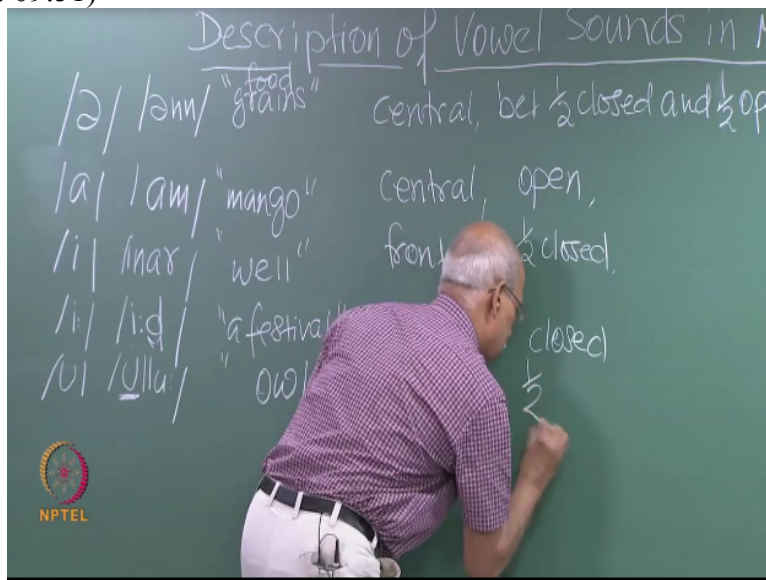 09:51)
Description of Vowel Sounds in M
/ə/ /ənn/ "food grains" central, bet ½ closed and ½ op
/a/ /am/ "mango" central, open,
/i/ /inar/ "well" front ½ closed.
/i:/ /i:d/ "a festival" closed
/U/ /Ullu:/ "owl ½
NPTEL